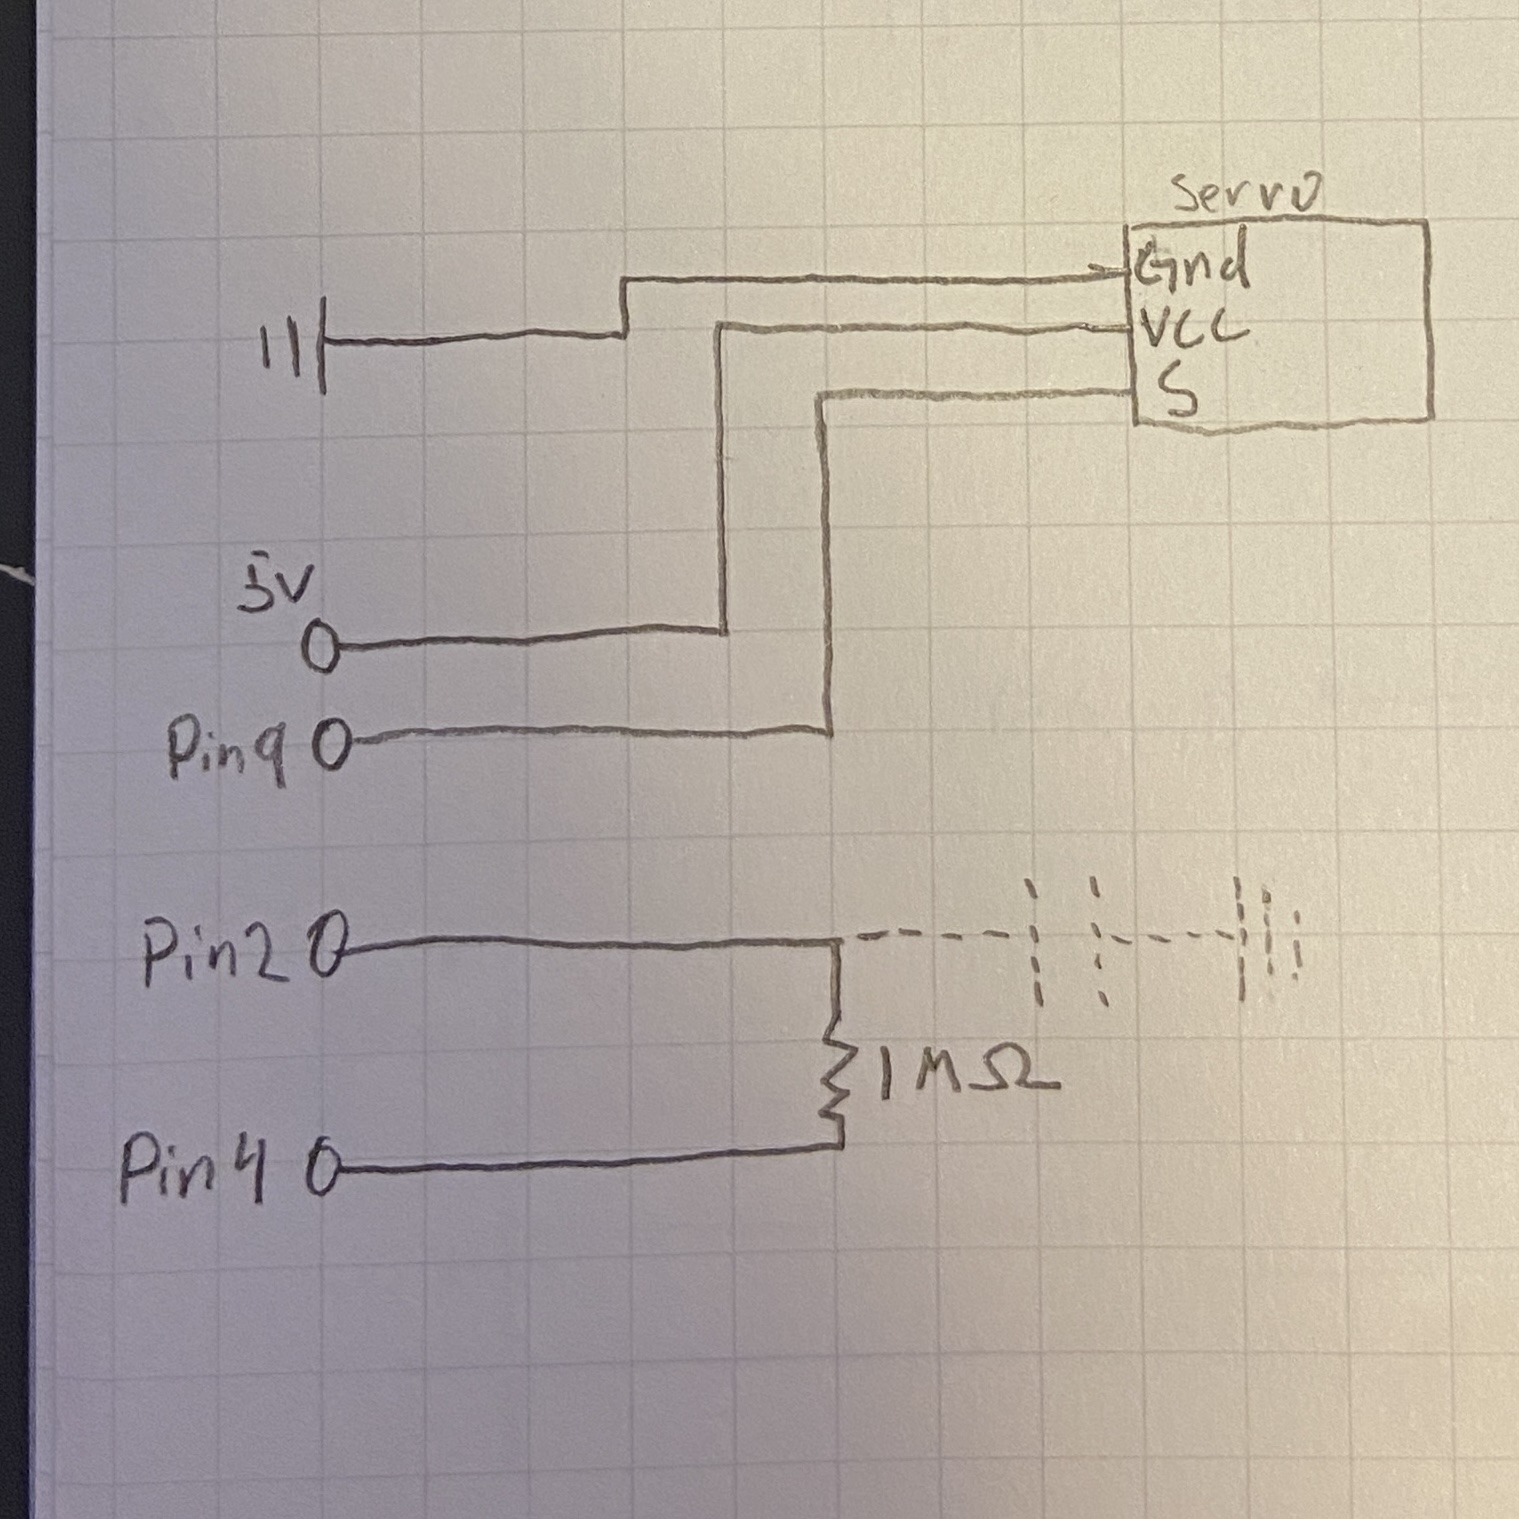 Servo
Gnd
VCC
S
5V
Pin9
Pin2
1MΩ
Pin4